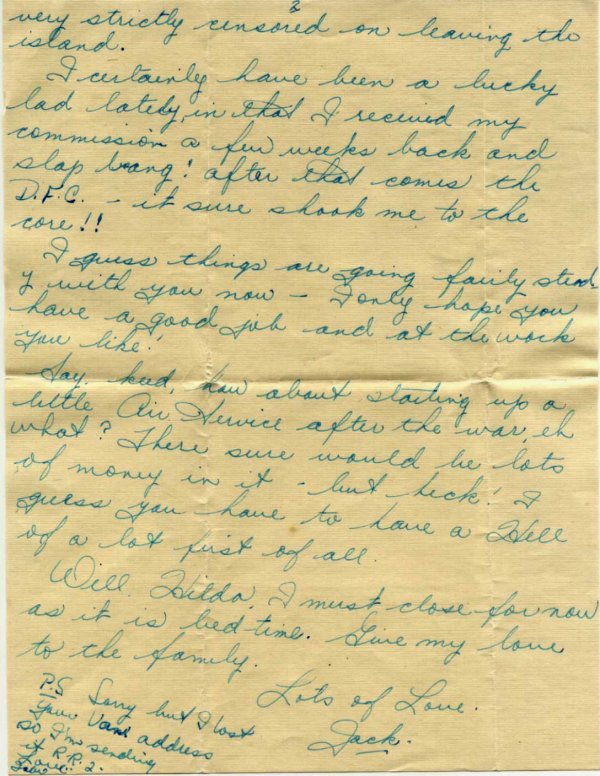 2
very strictly censored on leaving the
island.
I certainly have been a lucky
lad lately, in that I received my
commission a few weeks back and
slap bang! after that comes the
D.F.C. - it sure shook me to the
core!!
I guess things are going fairly stead
y with you now - I only hope you
have a good job and at the work
you like!
Say, keed, how about starting up a
little Air Service after the war, eh
what? There sure would be lots
of money in it - but heck! I
guess you have to have a Hell
of a lot first of all.
Well, Hilda, I must close for now
as it is bed time. Give my love
to the family.
Lots of Love.
Jack.
P.S. Sorry but I lost
your Van. address
so I'm sending
it R.R. 2.